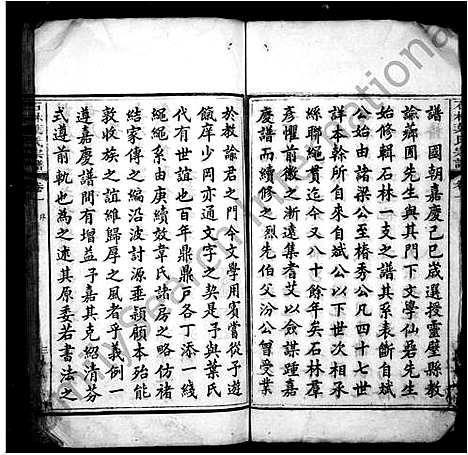 譜國朝嘉慶己巳歲選授靈璧縣教
諭鄉圃先生與其門下文學仙臺先生
始修輯石林一支之譜其系表斷自斌
公始由諸梁公至椿秀公凡四十七世
詳本幹所自來自斌公以下世次相承
緜聯繩貫迄今又八十餘年矣石林羣
彥懼前徽之漸遠集者艾以僉謀踵嘉
慶譜而續修之烈先伯父汾公曾受業
於教諭君之門今文學用賓嘗從予遊
飯庠少岡亦通文字之契是予與葉氏
代有世誼也百年鼎鼎戶各丁添一綫
繩繩系由庚續放韋氏諸房之略仿褚
結家傳之編沿波討源垂穎顧本殆能
敦收族之誼維歸厚之風者乎義例一
遵嘉慶譜間有增益子嘉其克紹清芬
式遵前軌也為之述其原委若書法之
石林葉氏宗譜 卷一 序 三
miyocarchinternational